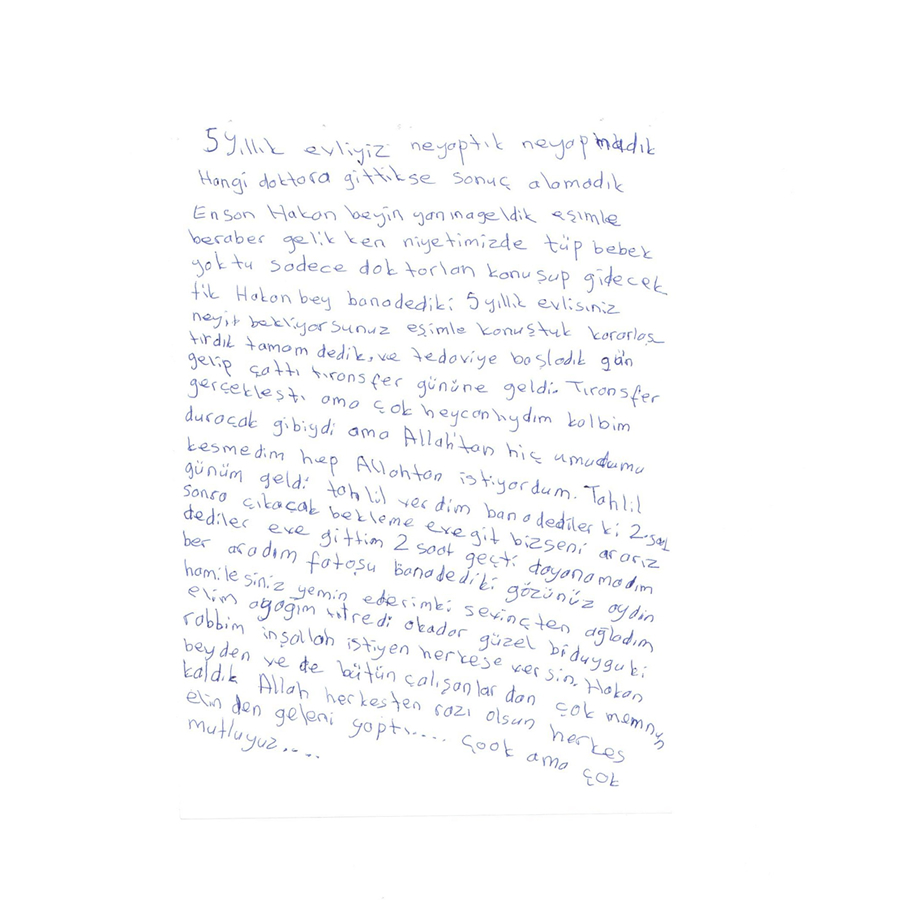 5 yıllık evliyiz neyaptık neyapmadık
Hangi doktora gittikse sonuç alamadık
Enson Hakan beyin yanınageldik eşimle
beraber gelik ken niyetimizde tüp bebek
yoktu sadece doktorlan konuşup gidecek
tik Hakan bey banadediki 5 yıllık evlisiniz
neyit bekliyorsunuz eşimle konuştuk kararlaş
tırdık tamam dedik, ve tedaviye başladık gün
gelip çattı tıransfer gününe geldi. Tıransfer
gerçekleşti ama çok heycanlıydım kalbim
duracak gibiydi ama Allah'tan hiç umudumu
kesmedim hep Allahtan istiyordum. Tahlil
günüm geldi tahlil verdim banadediler ki 2.saat
sonra çıkacak bekleme evegit bizseni ararız
dediler eve gittim 2 saat geçti dayanamadım
ber aradım fatoşu banadediki gözünüz aydın
hamilesiniz yemin ederimki sevinçten ağladım
elim ayağım titredi okadar güzel biduyguki
rabbim inşallah istiyen herkese versin. Hakan
beyden ve de bütün çalışanlar dan çok memnun
kaldık Allah herkesten razı olsun herkes
elin den geleni yaptı.... çook ama çok
mutluyuz....